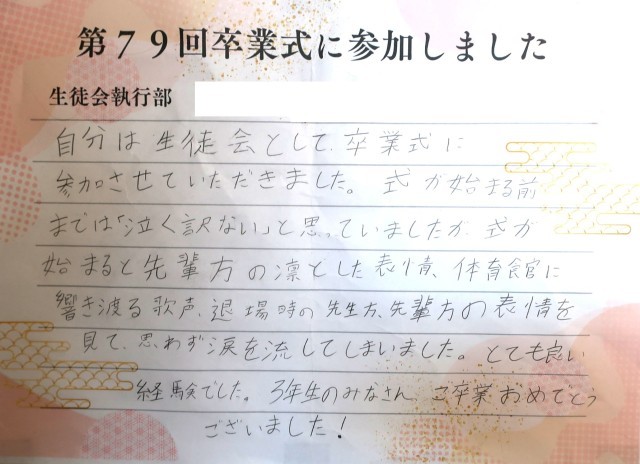 第79回卒業式に参加しました
生徒会執行部
自分は生徒会として、卒業式に
参加させていただきました。式が始まる前
までは「泣く訳ない」と思っていましたが、式が
始まると先輩方の凛とした表情、体育館に
響き渡る歌声、退場時の先生方、先輩方の表情を
見て、思わず涙を流してしまいました。とても良い
経験でした。3年生のみなさん、ご卒業おめでとう
ございました!